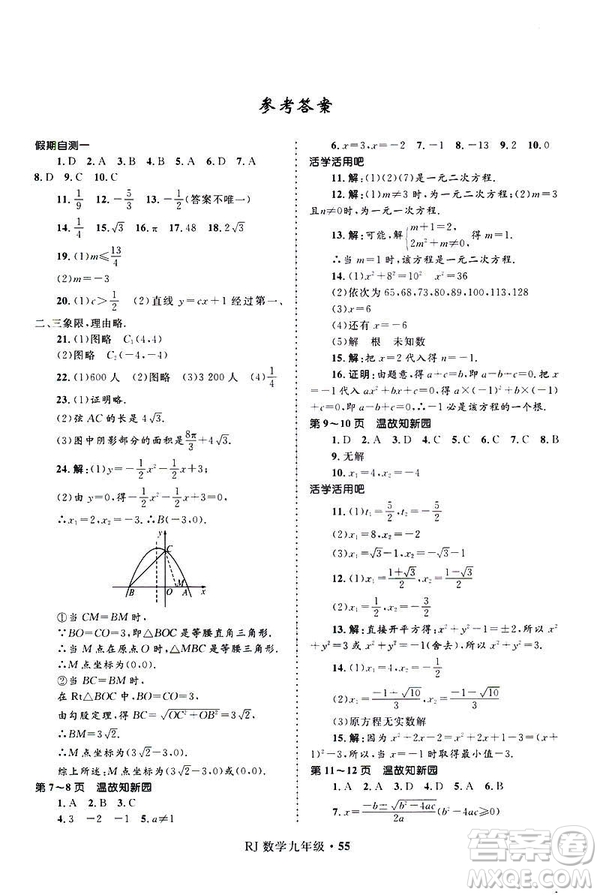 参考答案
假期自测一
1. D 2. A 3. C 4. B 5. B 6. D 7. A
8. D 9. C 10. C
11. 1/9 12. -5/3 13. -1/2(答案不唯一)
14. 1/4 15. √3 16. π 17. 48 18. 2√3
19. (1)m≤13/4
(2)m=-2
20. (1)c>1/4 (2)直线 y=cx+1经过第一、
二、三象限,理由略.
21. (1)图略 C₁(4,4)
(2)图略
22. (1)600人 (2)图略 (3)3 200人 (4)1/4
23. (1)证明略.
(2)弦AC的长是4√3.
(3)图中阴影部分的面积是8π/3+4√3.
24. 解:(1)y=-1/2x²-1/2x+3;
(2)由y=0,得-1/2x²-1/2x+3=0.
∴x₁=2,x₂=-3.∴B(-3,0).
y
C
B O M A x
①当CM=BM时,
∵BO=CO=3,即△BOC是等腰直角三角形.
∴当M点在原点O时,△MBC是等腰三角形.
∴M点坐标为(0,0).
②当BC=BM时,
在Rt△BOC中,BO=CO=3,
由勾股定理,得BC=√(OC²+OB²)=3√2.
∴BM=3√2.
∴M点坐标为(3√2-3,0).
综上所述,M点坐标为(3√2-3,0)或(0,0).
第7~8页 温故知新园
1. A 2. A 3. B 4. C
5. x²+1=0(答案不唯一)
6. x=3,x=-2 7. -1 8. -13 9. 2 10. 0
活学活用吧
11. 解:(1)(2)(7)为一元二次方程.
12. 解:(1)m≠3时,为一元二次方程. (2)m=3
且n≠0时,为一元一次方程.
13. 解:可能,解{m+1=2, m²+m≠0, 得m=1.
∴当m=1时,该方程是一元二次方程.
14. (1)x²+8²=10² x²=36
(2)依次为65,68,73,80,89,100,113,128
(3)x=6
(4)还有 x=-6
(5)解 根 未知数
16. 证明:由题意,得a+c=b,即a-b+c=0,把x=
-1代入ax²+bx+c=0,得a×(-1)²+b×(-1)+c=
a-b+c=0,∴-1必是该方程的一个根.
第9~10页 温故知新园
1. D 2. A 3. D 4. D 5. C 6. C 7. C 8. B
9. 无解
10. x₁=4,x₂=-4
活学活用吧
11. (1)t₁=5/2,t₂=-5/2
(2)x₁=√3-1,x₂=-√3-1
12. (1)x₁=(1+√3)/2,x₂=(1-√3)/2
(2)x₁=1,x₂=-4
13. 解:直接开平方得:x²+y²-1=±2.所以x²+
y²=3或x²+y²=-1(舍去),所以x²+y²=3
14. (1)x₁=1,x₂=-5
(2)x₁=(-1-√10)/3,x₂=(-1+√10)/3
(3)原方程无实数解
15. 解:x²+2x-2=x²+2x+1-3=(x+1)²-3,
∴当x=-1时,该代数式取得最小值-3.
第11~12页 温故知新园
1. D 2. B 3. C 4. A 5. A 6. C
7. x=(-b±√(b²-4ac))/2a(b²-4ac≥0)
RJ数学九年级·55